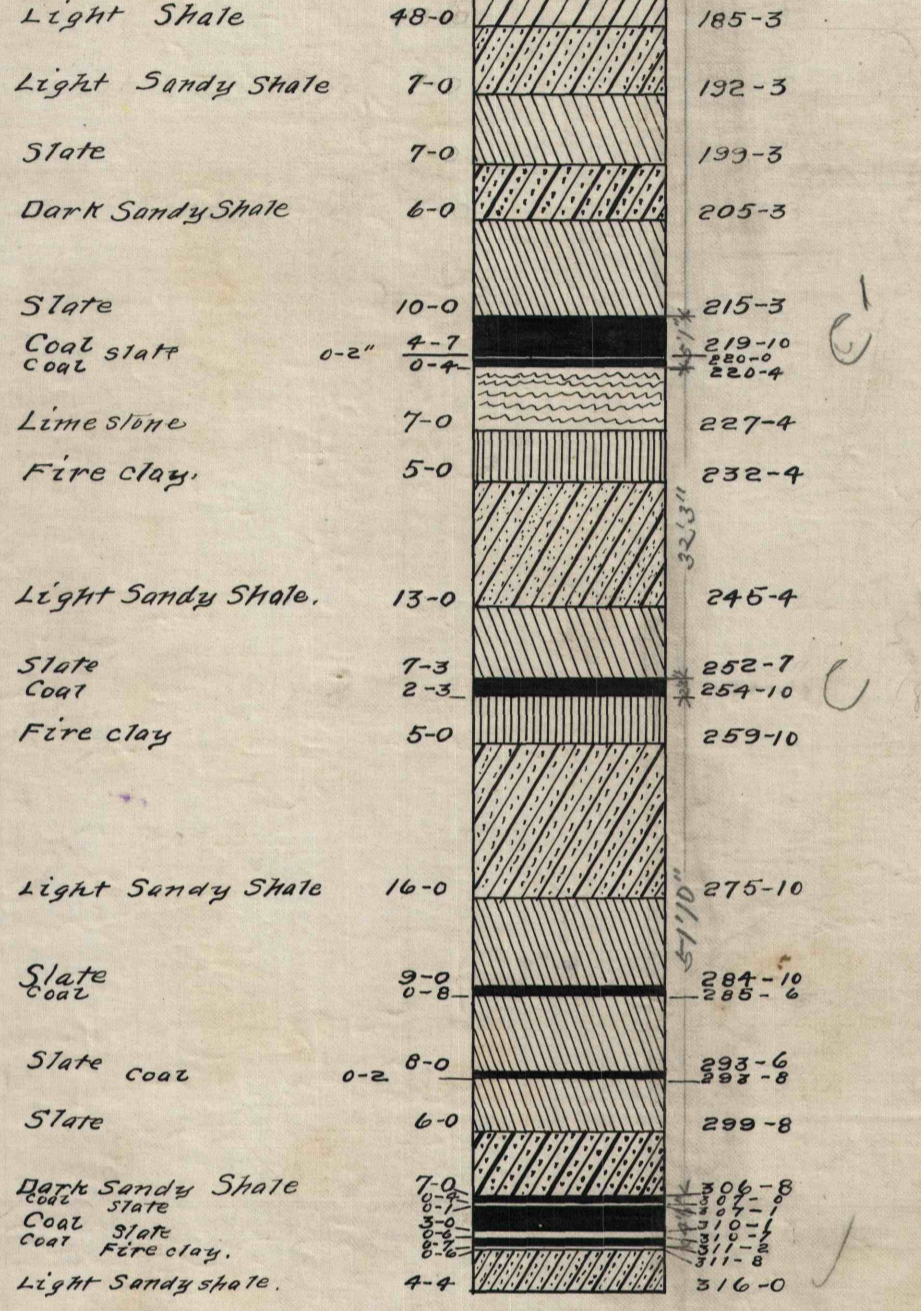 Light Shale 48-0 185-3
Light Sandy Shale 7-0 192-3
Slate 7-0 199-3
Dark Sandy Shale 6-0 205-3
Slate 10-0 215-3
Coal 4-7 219-10
slate 0-2" 220-0
Coal 0-4 220-4
Lime stone 7-0 227-4
Fire clay. 5-0 232-4
32'3"
Light Sandy Shale. 13-0 245-4
Slate 7-3 252-7
Coal 2-3 254-10 C
Fire clay 5-0 259-10
Light Sandy Shale 16-0 275-10
51'10"
Slate 9-0 284-10
Coal 0-8 285-6
Slate 8-0 293-6
Coal 0-2 293-8
Slate 6-0 299-8
Dark Sandy Shale 7-0 306-8
Coal 0-4 307-0
Slate 0-1 307-1
Coal 3-0 310-1
Slate 0-6 310-7
Coal 0-7 311-2
Fire clay. 0-6 311-8
Light Sandy shale. 4-4 316-0